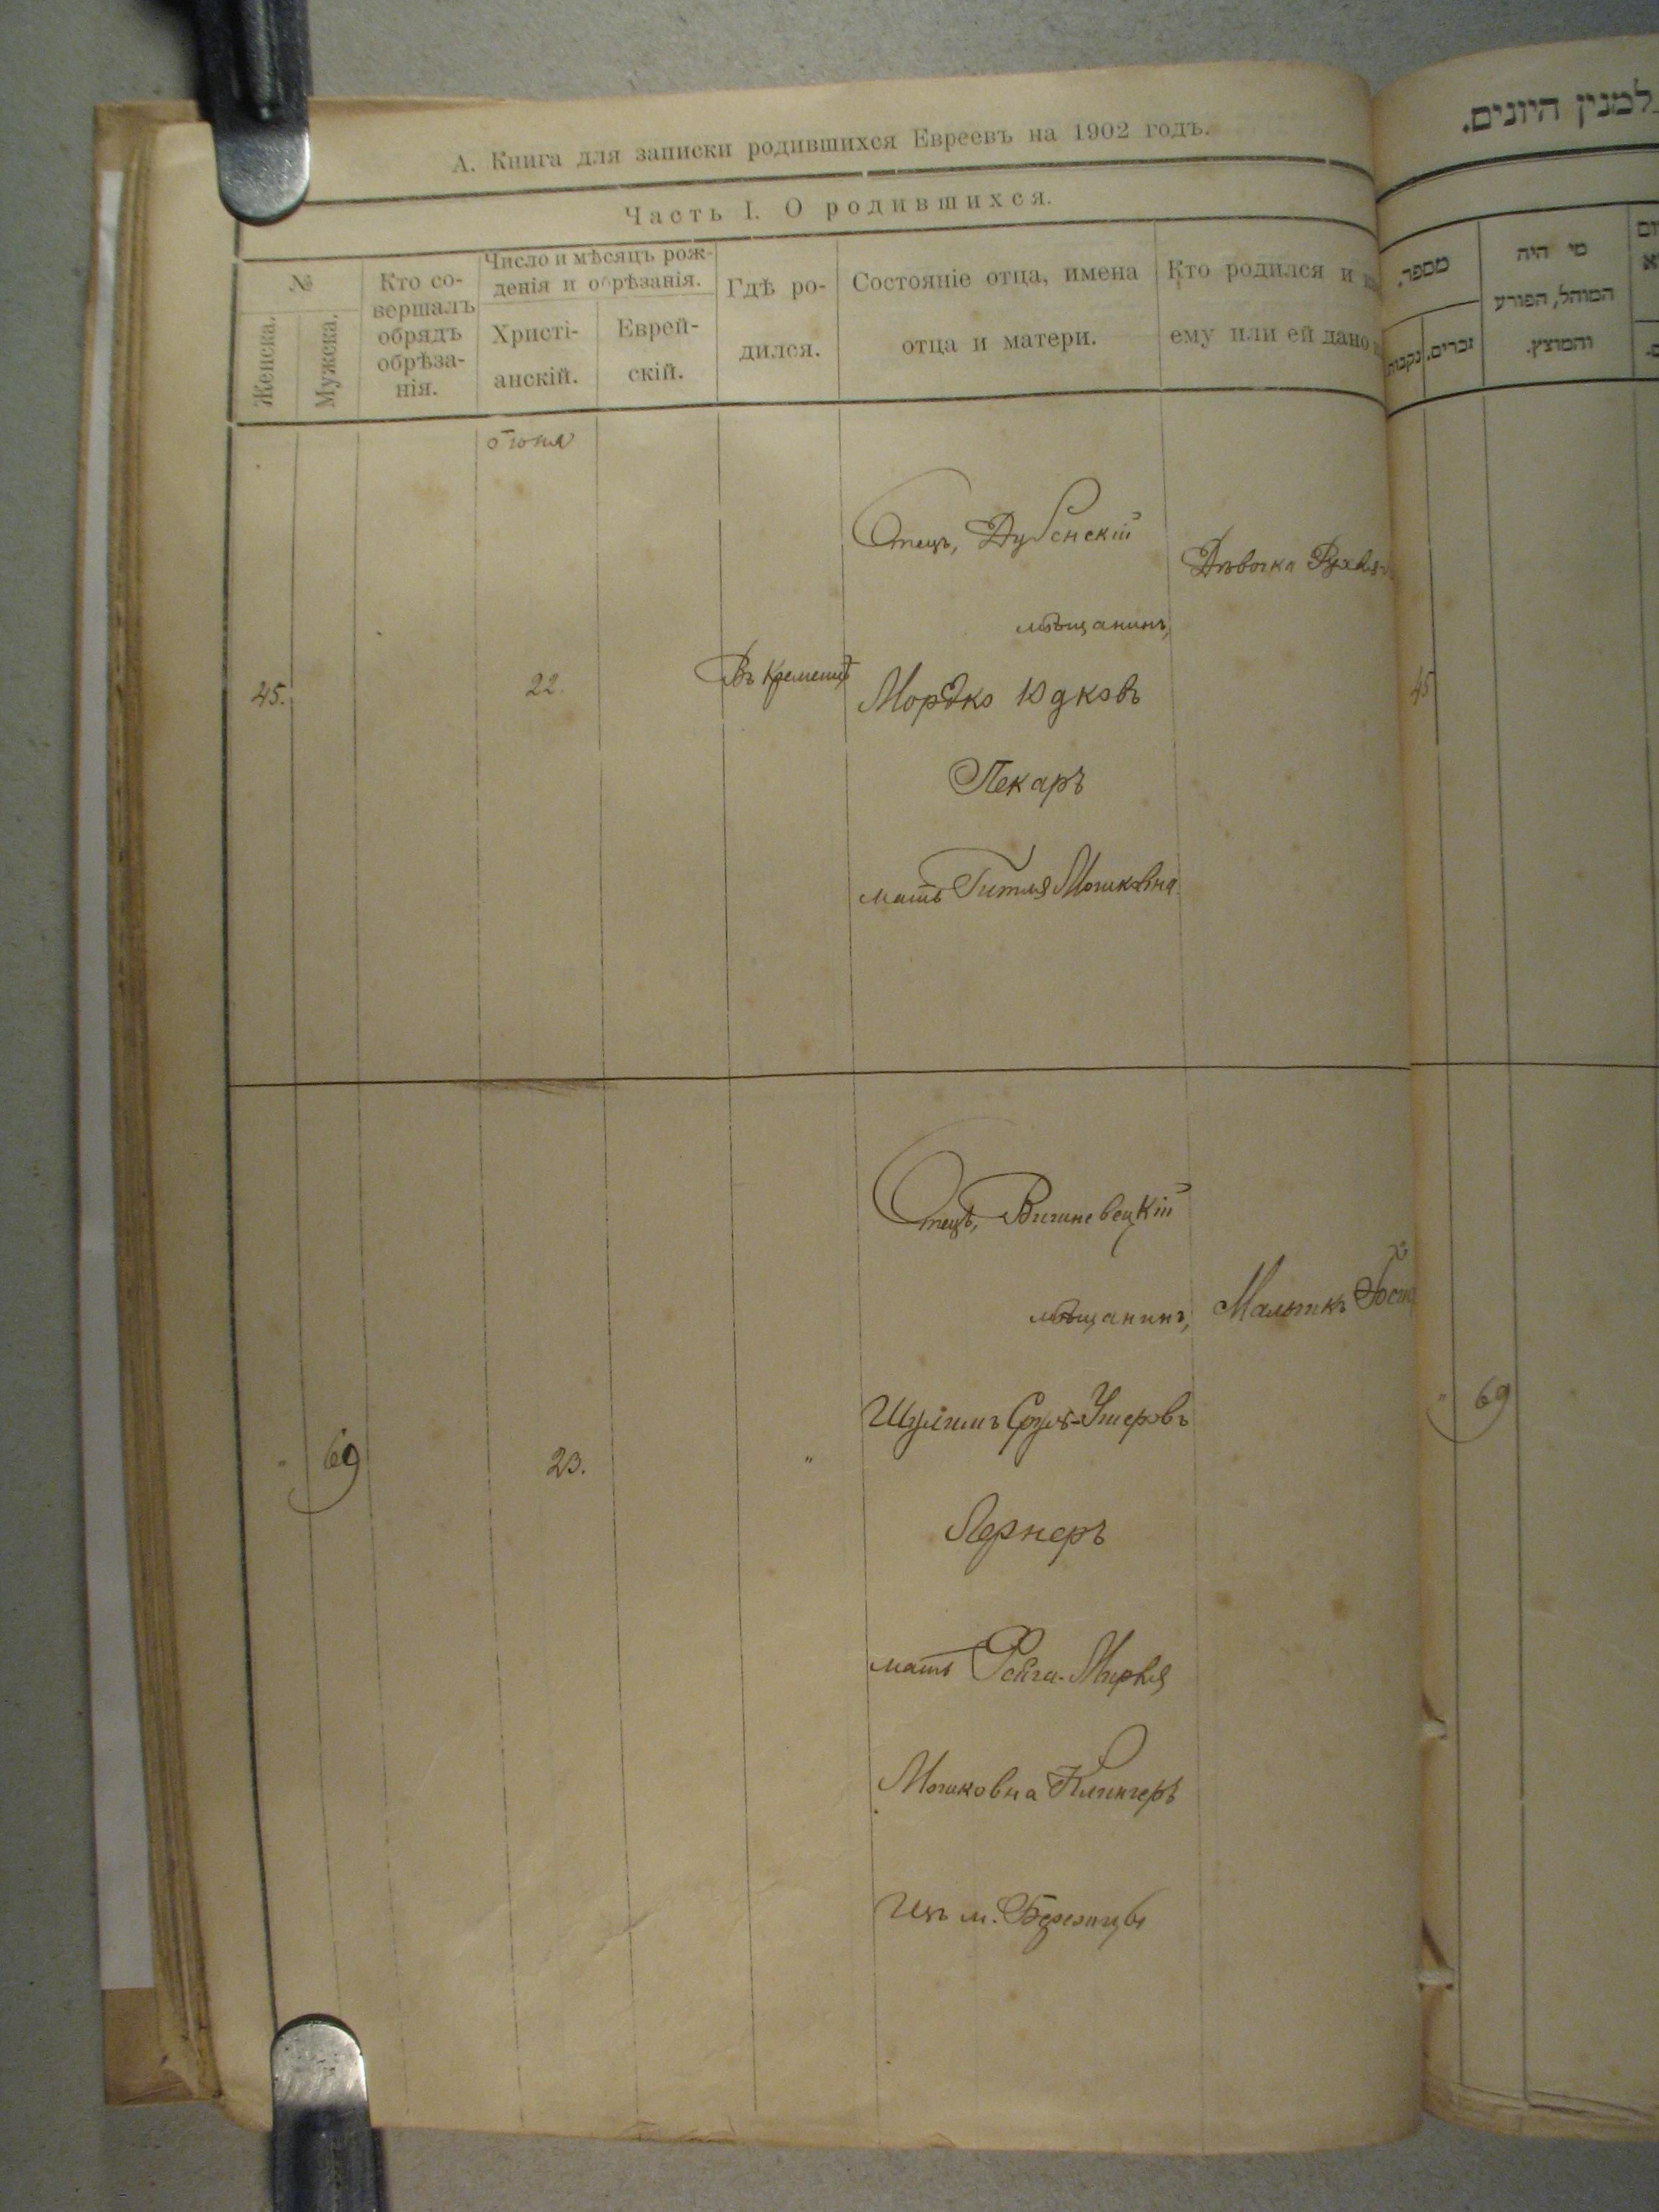 А. Книга для записки родившихся Евреевъ на 1902 годъ.
Часть I. О родившихся.
№
Женска.
Мужска.
Кто со-
вершалъ
обрядъ
обрѣза-
нія.
Число и мѣсяцъ рож-
денія и обрѣзанія.
Христі-
анскій.
Еврей-
скій.
Гдѣ ро-
дился.
Состояніе отца, имена
отца и матери.
Кто родился и
ему или ей дано
45.
22.
Въ Кременцѣ
Отецъ, Дубенскій
мѣщанинъ,
Мордко Юдковъ
Пекаръ
мать Гитля Мошковна
Дѣвочка
69
23.
"
Отецъ, Вишневецкій
мѣщанинъ,
Шулимъ Сруль-Ушеровъ
Лернеръ
мать Фейга-Миреля
Мошковна Клингеръ
Изъ м. Бережцы
למנין היונים.
מספר.
נקבות
זכרים.
מי היה
המוהל, הפורע
והמוצץ.
45
" 69